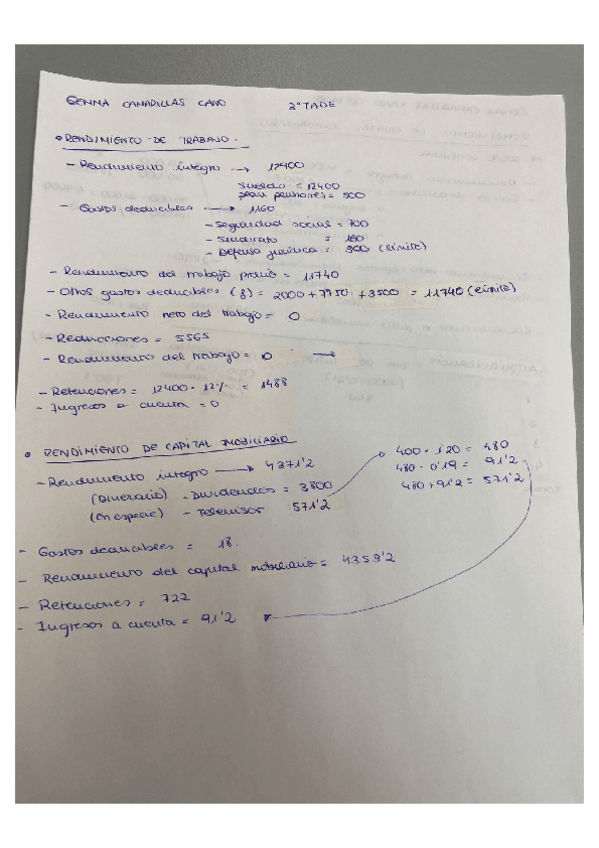 GEMMA CANADILLAS CANO 2º TADE
• RENDIMIENTO DE TRABAJO.
- Rendimiento integro → 12900
Sueldo = 12400
plan pensiones = 500
- Gastos deducibles → 1160
- Seguridad social = 700
- Sindicato = 160
- Defensa jurídica = 300 (límite)
- Rendimiento del trabajo previo = 11740
- Otros gastos deducibles (f) = 2000 + 7750 + 3500 = 11740 (límite)
- Rendimiento neto del trabajo = 0
- Reducciones = 5565
- Rendimiento del trabajo = 0 →
- Retenciones = 12400 · 12% = 1488
- Ingresos a cuenta = 0
• RENDIMIENTO DE CAPITAL MOBILIARIO
- Rendimiento integro → 4371'2
(Dinerario) - Dividendos = 3800
(En especie) - Televisor 571'2
400 · 1'20 = 480
480 · 0'19 = 91'2
480 + 91'2 = 571'2
- Gastos deducibles = 18.
- Rendimiento del capital mobiliario = 4359'2
- Retenciones = 722
- Ingresos a cuenta = 91'2